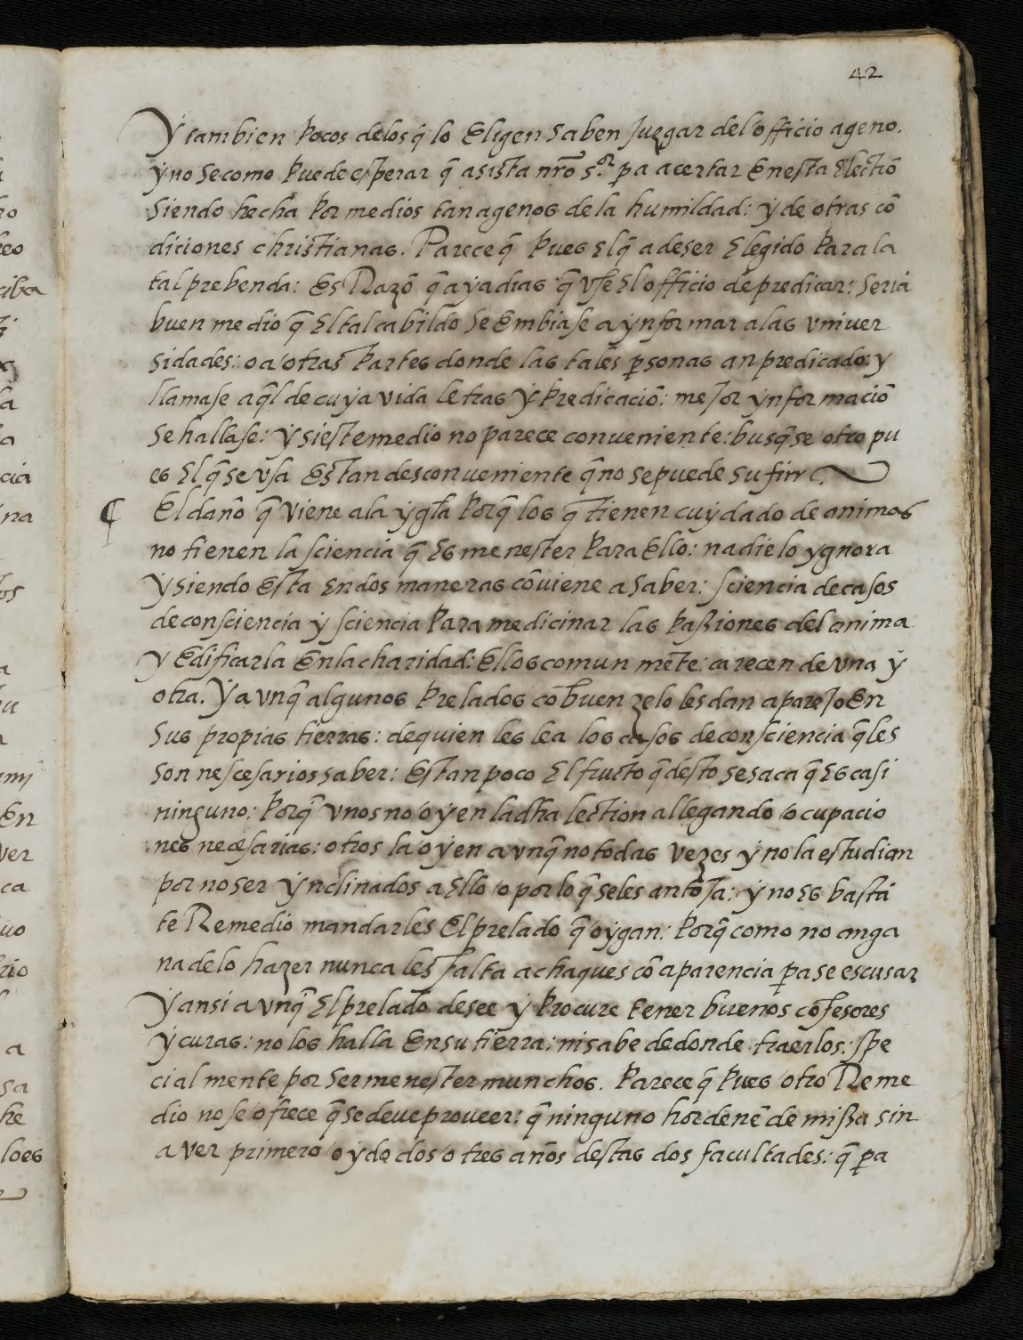 42
Y tambien pocos delos q̃ lo eligen saben juzgar del officio ageno.
y no se como puede esperar q̃ asista nrõ s.ᵒʳ pa acertar enesta electiõ
siendo hecha por medios tan agenos de la humildad: y de otras cõ
diciones christianas. Parece q̃ pues el q̃ a de ser elegido para la
tal prebenda: es Razõ q̃ aya dias q̃ vse el officio de predicar: seria
buen medio q̃ el tal cabildo se embiase a ynformar a las vniuer
sidades: o a otras partes donde las tales psonas an predicado: y
llamase aq̃l de cuya vida letras y predicaciõ: mejor ynformaciõ
se hallase: y si este medio no parece conueniente: busq̃se otro pu
es el q̃ se vsa es tan desconueniente q̃ no se puede sufrir.
¶ El daño q̃ viene a la ygłia porq̃ los q̃ tienen cuydado de animas
no tienen la sciencia q̃ es menester para ello: nadie lo ygnora
y siendo esta en dos maneras cõuiene a saber: sciencia de casos
de consciencia y sciencia para medicinar las passiones del anima
y edificarla en la charidad: ellos comun mẽte: carecen de vna y
otra. Y avnq̃ algunos prelados cõ buen zelo les dan aparejo en
sus propias tierras: de quien les lea los casos de consciencia q̃ les
son nescesarios saber: es tan poco el fructo q̃ desto se saca q̃ es casi
ninguno: Porq̃ vnos no oyen la dħa lection allegando ocupacio
nes necesarias: otros la oyen avnq̃ no todas vezes y no la estudian
por no ser ynclinados a ello o por lo q̃ se les antoja: y no es bastã
te Remedio mandarles el prelado q̃ oygan: Porq̃ como no an ga
na de lo hazer nunca les falta achaques cõ aparencia pa se escusar
Y ansi avnq̃ el prelado desee y procure tener buenos cõfesores
y curas: no los halla en su tierra: ni sabe de donde traerlos: spe
cial mente por ser menester munchos. Parece q̃ pues otro Reme
dio no se ofrece q̃ se deue proueer: q̃ ninguno hordenẽ de missa sin
aver primero oydo dos o tres años destas dos facultades: q̃ pa